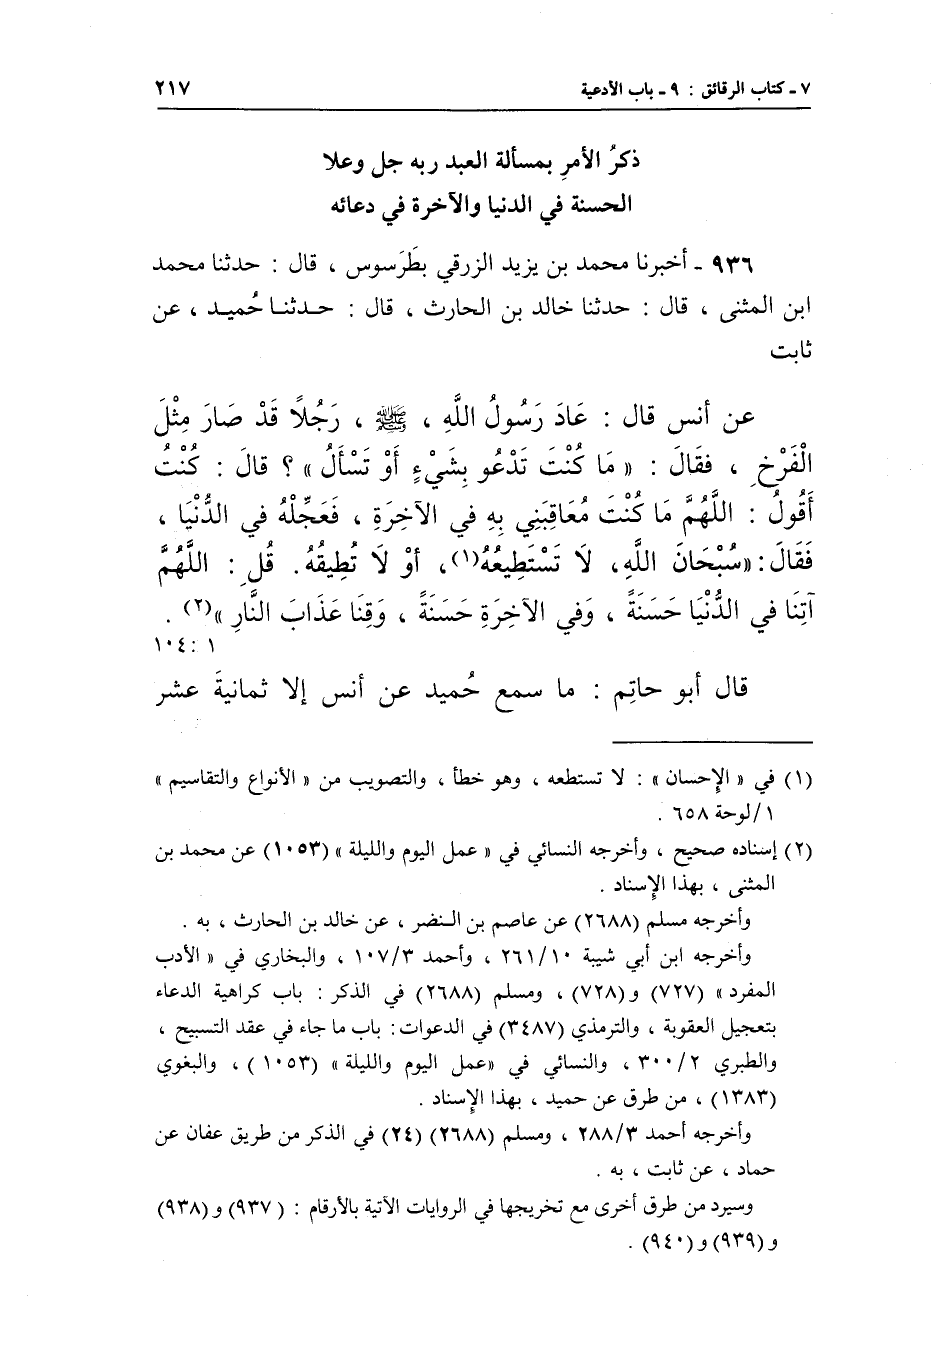 ٧ - كتاب الرقائق : ٩ - باب الأدعية ٢١٧
ذكرُ الأمرِ بمسألة العبد ربه جل وعلا
الحسنة في الدنيا والآخرة في دعائه
٩٣٦ - أخبرنا محمد بن يزيد الزرقي بطَرَسوس ، قال : حدثنا محمد
ابن المثنى ، قال : حدثنا خالد بن الحارث ، قال : حدثنا حُميد ، عن
ثابت
عن أنس قال : عَادَ رَسُولُ اللَّهِ ، ﷺ ، رَجُلاً قَدْ صَارَ مِثْلَ
الْفَرْخِ ، فقَالَ : « مَا كُنْتَ تَدْعُو بِشَيْءٍ أَوْ تَسْأَلُ » ؟ قالَ : كُنْتُ
أَقُولُ : اللَّهُمَّ مَا كُنْتَ مُعَاقِبَنِي بِهِ في الآخِرَةِ ، فَعَجِّلْهُ في الدُّنْيَا ،
فَقَالَ: «سُبْحَانَ اللَّهِ، لَا تَسْتَطِيعُهُ(١)، أَوْ لَا تُطِيقُهُ. قُلِ : اللَّهُمَّ
آتِنَا في الدُّنْيَا حَسَنَةً ، وَفي الآخِرَةِ حَسَنَةً ، وَقِنَا عَذَابَ النَّارِ »(٢) .
١ : ١٠٤
قال أبو حاتِم : ما سمع حُميد عن أنس إلا ثمانيةَ عشر
(١) في « الإحسان » : لا تستطعه ، وهو خطأ ، والتصويب من « الأنواع والتقاسيم »
١/لوحة ٦٥٨ .
(٢) إسناده صحيح ، وأخرجه النسائي في « عمل اليوم والليلة » (١٠٥٣) عن محمد بن
المثنى ، بهذا الإسناد .
وأخرجه مسلم (٢٦٨٨) عن عاصم بن النضر ، عن خالد بن الحارث ، به .
وأخرجه ابن أبي شيبة ٢٦١/١٠ ، وأحمد ١٠٧/٣ ، والبخاري في « الأدب
المفرد » (٧٢٧) و(٧٢٨) ، ومسلم (٢٦٨٨) في الذكر : باب كراهية الدعاء
بتعجيل العقوبة ، والترمذي (٣٤٨٧) في الدعوات: باب ما جاء في عقد التسبيح ،
والطبري ٣٠٠/٢ ، والنسائي في «عمل اليوم والليلة» (١٠٥٣) ، والبغوي
(١٣٨٣) ، من طرق عن حميد ، بهذا الإسناد .
وأخرجه أحمد ٢٨٨/٣ ، ومسلم (٢٦٨٨) (٢٤) في الذكر من طريق عفان عن
حماد ، عن ثابت ، به .
وسيرد من طرق أخرى مع تخريجها في الروايات الآتية بالأرقام : (٩٣٧) و(٩٣٨)
و(٩٣٩) و(٩٤٠) .